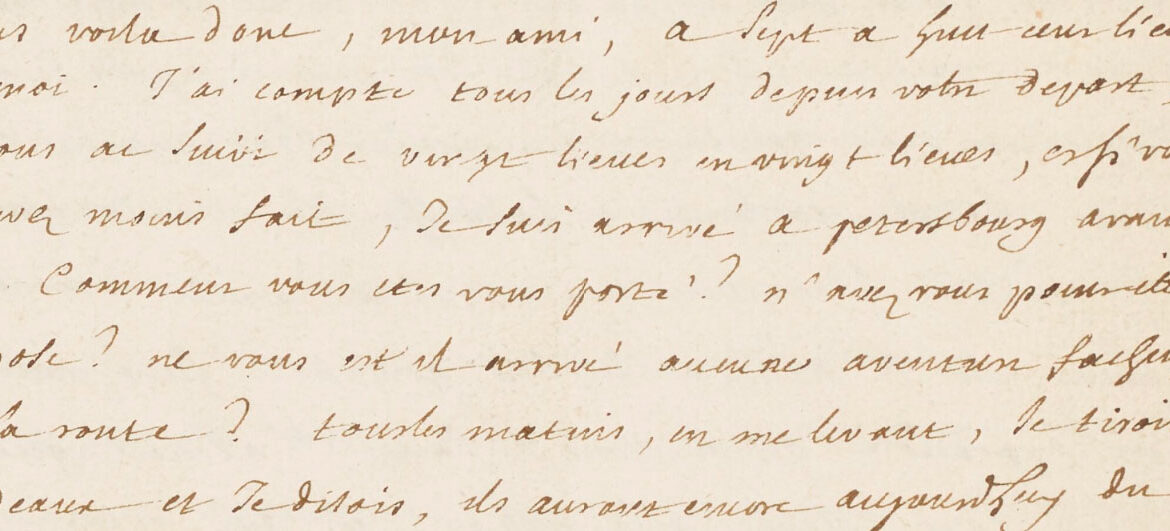 voila donc, mon ami, a sept a huit cens
moi. J'ai compté tous les jours depuis votre depart,
ai suivi de vingt lieues en vingt lieues, et si
moins fait, Je suis arrivé a petersbourg avant
Comment vous etes vous porté? n'avez vous point eté
? ne vous est il arrivé aucune aventure
la route? tous les matins, en me levant, Je tirois
et Je disois, ils auront encore aujourd'huy du